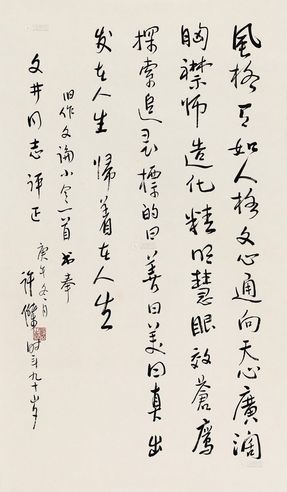 風格如人格文心通向天心廣闊
胸襟師造化精明慧眼效蒼鷹
探索追標的曰善曰美曰真出
發在人生歸着在人生
旧作文論小令一首书奉
文井同志評正
庚午冬月
許傑時年九十岁